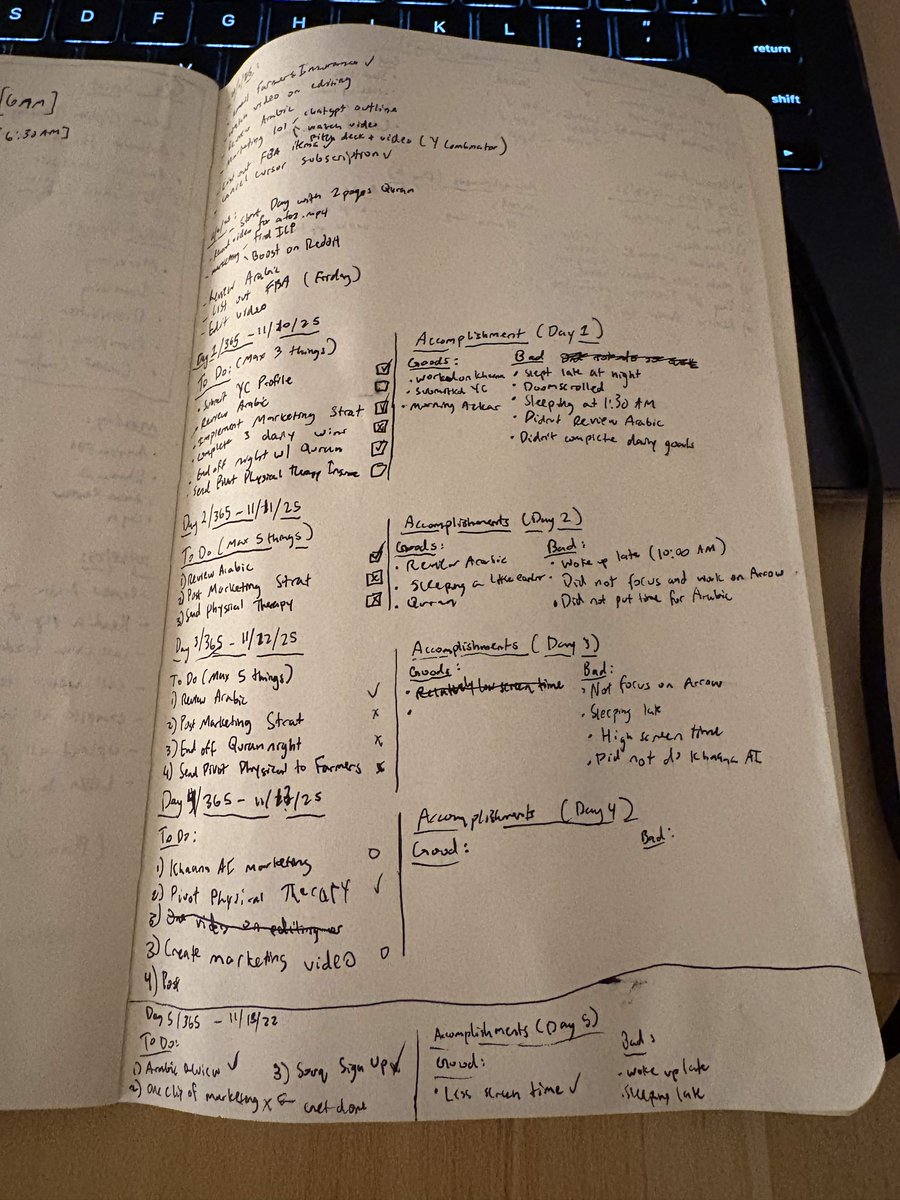 S D F G H K L : ; " '
return
shift
[6AM]
6:30AM]
Farmers Insurance ✓
video on editing
Arabic
Marketing 101 - chatgpt outline
- watch video
List out FBA items
Pitch deck + video (Y Combinator)
- Cancel cursor subscription ✓
- Start Day with 2 pages Quran
video for .mp4
- marketing - find ICP
- Boost on Reddit
- Review Arabic
- List out FBA (Friday)
- Edit video
Day 1/365 - 11/10/25
To Do: (Max 3 things)
• Submit YC Profile ☑
• Review Arabic ☐
• Implement Marketing Strat ☑
• Complete 3 daily wins ☒
• End off night w/ Quran ☑
• Send Pivot Physical Therapy Insure ☐
Accomplishment (Day 1)
Goods:
• worked on Khaana
• Submitted YC
• Morning Azkar
Bad
• Slept late at night
• Doomscrolled
• Sleeping at 1:30 AM
• Didn't Review Arabic
• Didn't complete daily goals
Day 2/365 - 11/11/25
To Do (Max 5 things)
1) Review Arabic ☑
2) Post Marketing Strat ☒
3) Send Physical Therapy ☒
Accomplishments (Day 2)
Goods:
• Review Arabic
• Sleeping a little earlier
• Quran
Bad:
• Woke up late (10:00 AM)
• Did not focus and work on Arrow
• Did not put time for Arabic
Day 3/365 - 11/12/25
To Do (Max 5 things)
1) Review Arabic ✓
2) Post Marketing Strat x
3) End off Quran night x
4) Send Pivot Physical to Farmers x
Accomplishments (Day 3)
Goods:
• Relatively low screen time
•
Bad:
• Not focus on Arrow
• Sleeping late
• High screen time
• Did not do Khaana AI
Day 4/365 - 11/13/25
To Do:
1) Khaana AI marketing o
2) Pivot Physical Therapy ✓
3) One video on editing
3) Create marketing video o
4) Post
Accomplishments (Day 4)
Good:
Bad:
Day 5/365 - 11/13/22
To Do:
1) Arabic review ✓
2) One clip of marketing x
3) Sign Up
Accomplishments (Day 5)
Good:
• Less screen time ✓
Bad:
• Woke up late
• Sleeping late